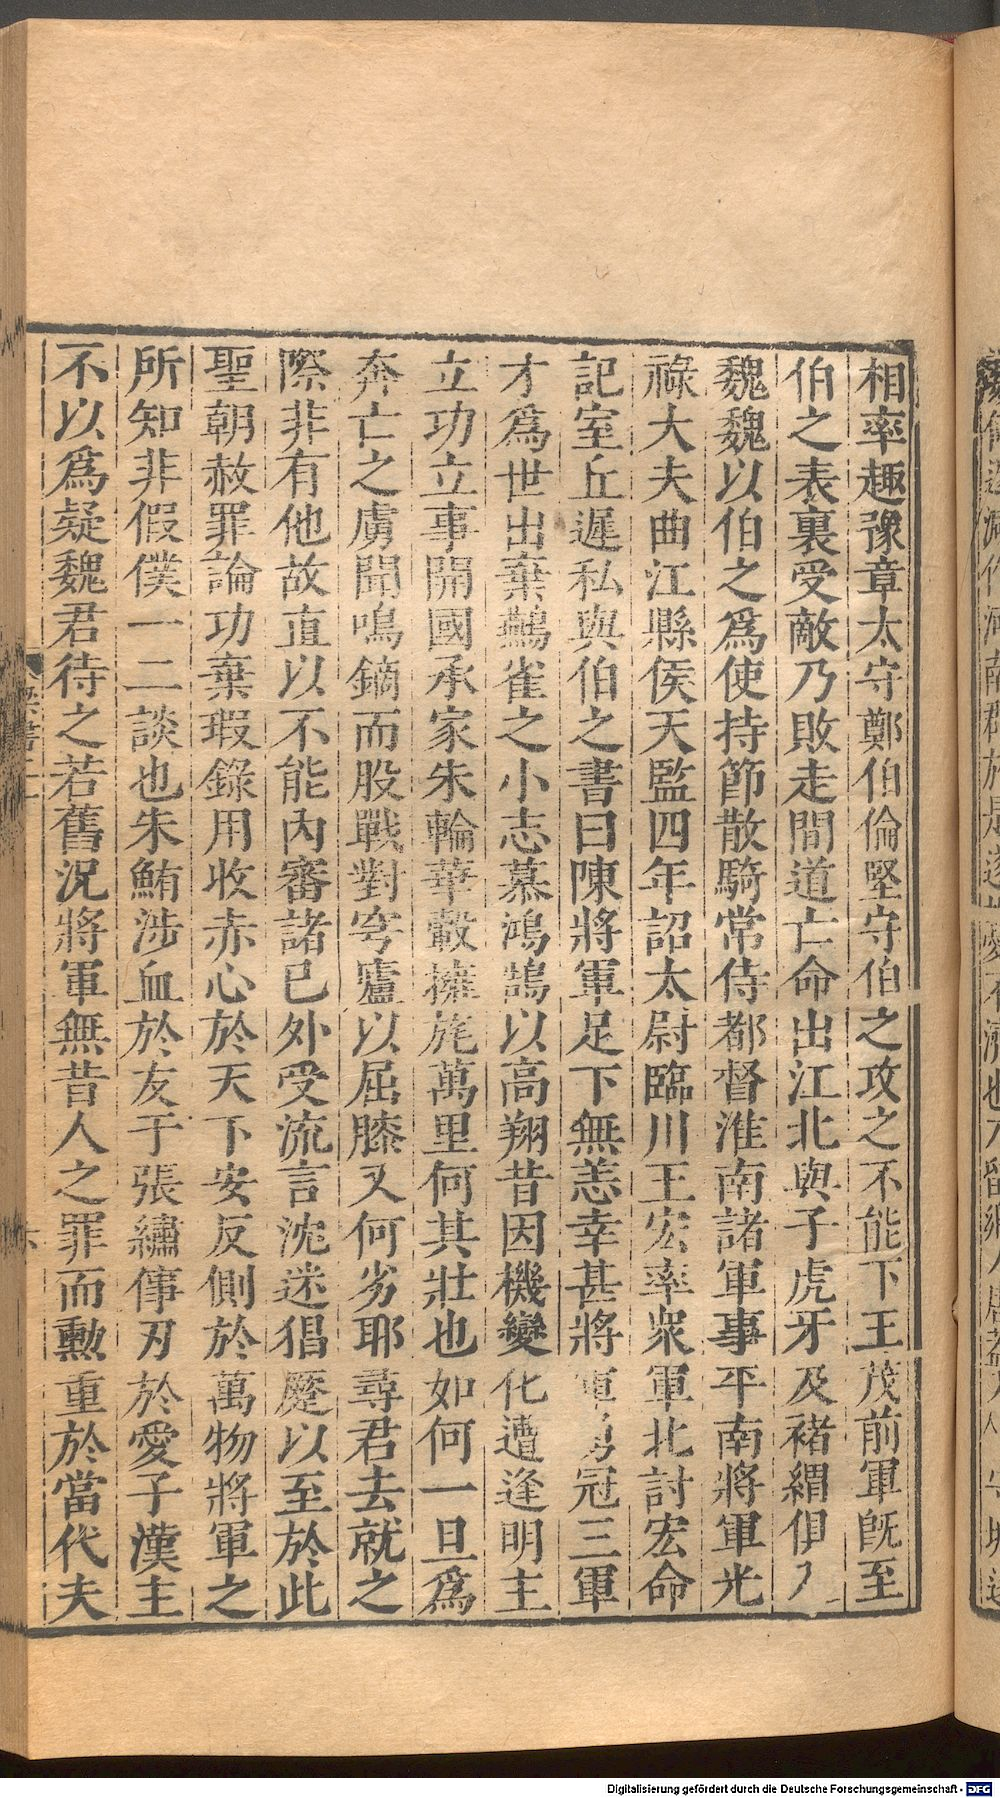 相率趣豫章太守鄭伯倫堅守伯之攻之不能下王茂前軍旣至
伯之表裏受敵乃敗走間道亡命出江北與子虎牙及褚緭俱入
魏魏以伯之爲使持節散騎常侍都督淮南諸軍事平南將軍光
祿大夫曲江縣侯天監四年詔太尉臨川王宏率衆軍北討宏命
記室丘遲私與伯之書曰陳將軍足下無恙幸甚將軍勇冠三軍
才爲世出棄鷰雀之小志慕鴻鵠以高翔昔因機變化遭逢明主
立功立事開國承家朱輪華轂擁旄萬里何其壯也如何一旦爲
奔亡之虜聞鳴鏑而股戰對穹廬以屈膝又何劣耶尋君去就之
際非有他故直以不能內審諸已外受流言沈迷猖蹷以至於此
聖朝赦罪論功棄瑕錄用收赤心於天下安反側於萬物將軍之
所知非假僕一二談也朱鮪涉血於友于張繡倳刃於愛子漢主
不以爲疑魏君待之若舊況將軍無昔人之罪而勳重於當代夫
Digitalisierung gefördert durch die Deutsche Forschungsgemeinschaft - DFG